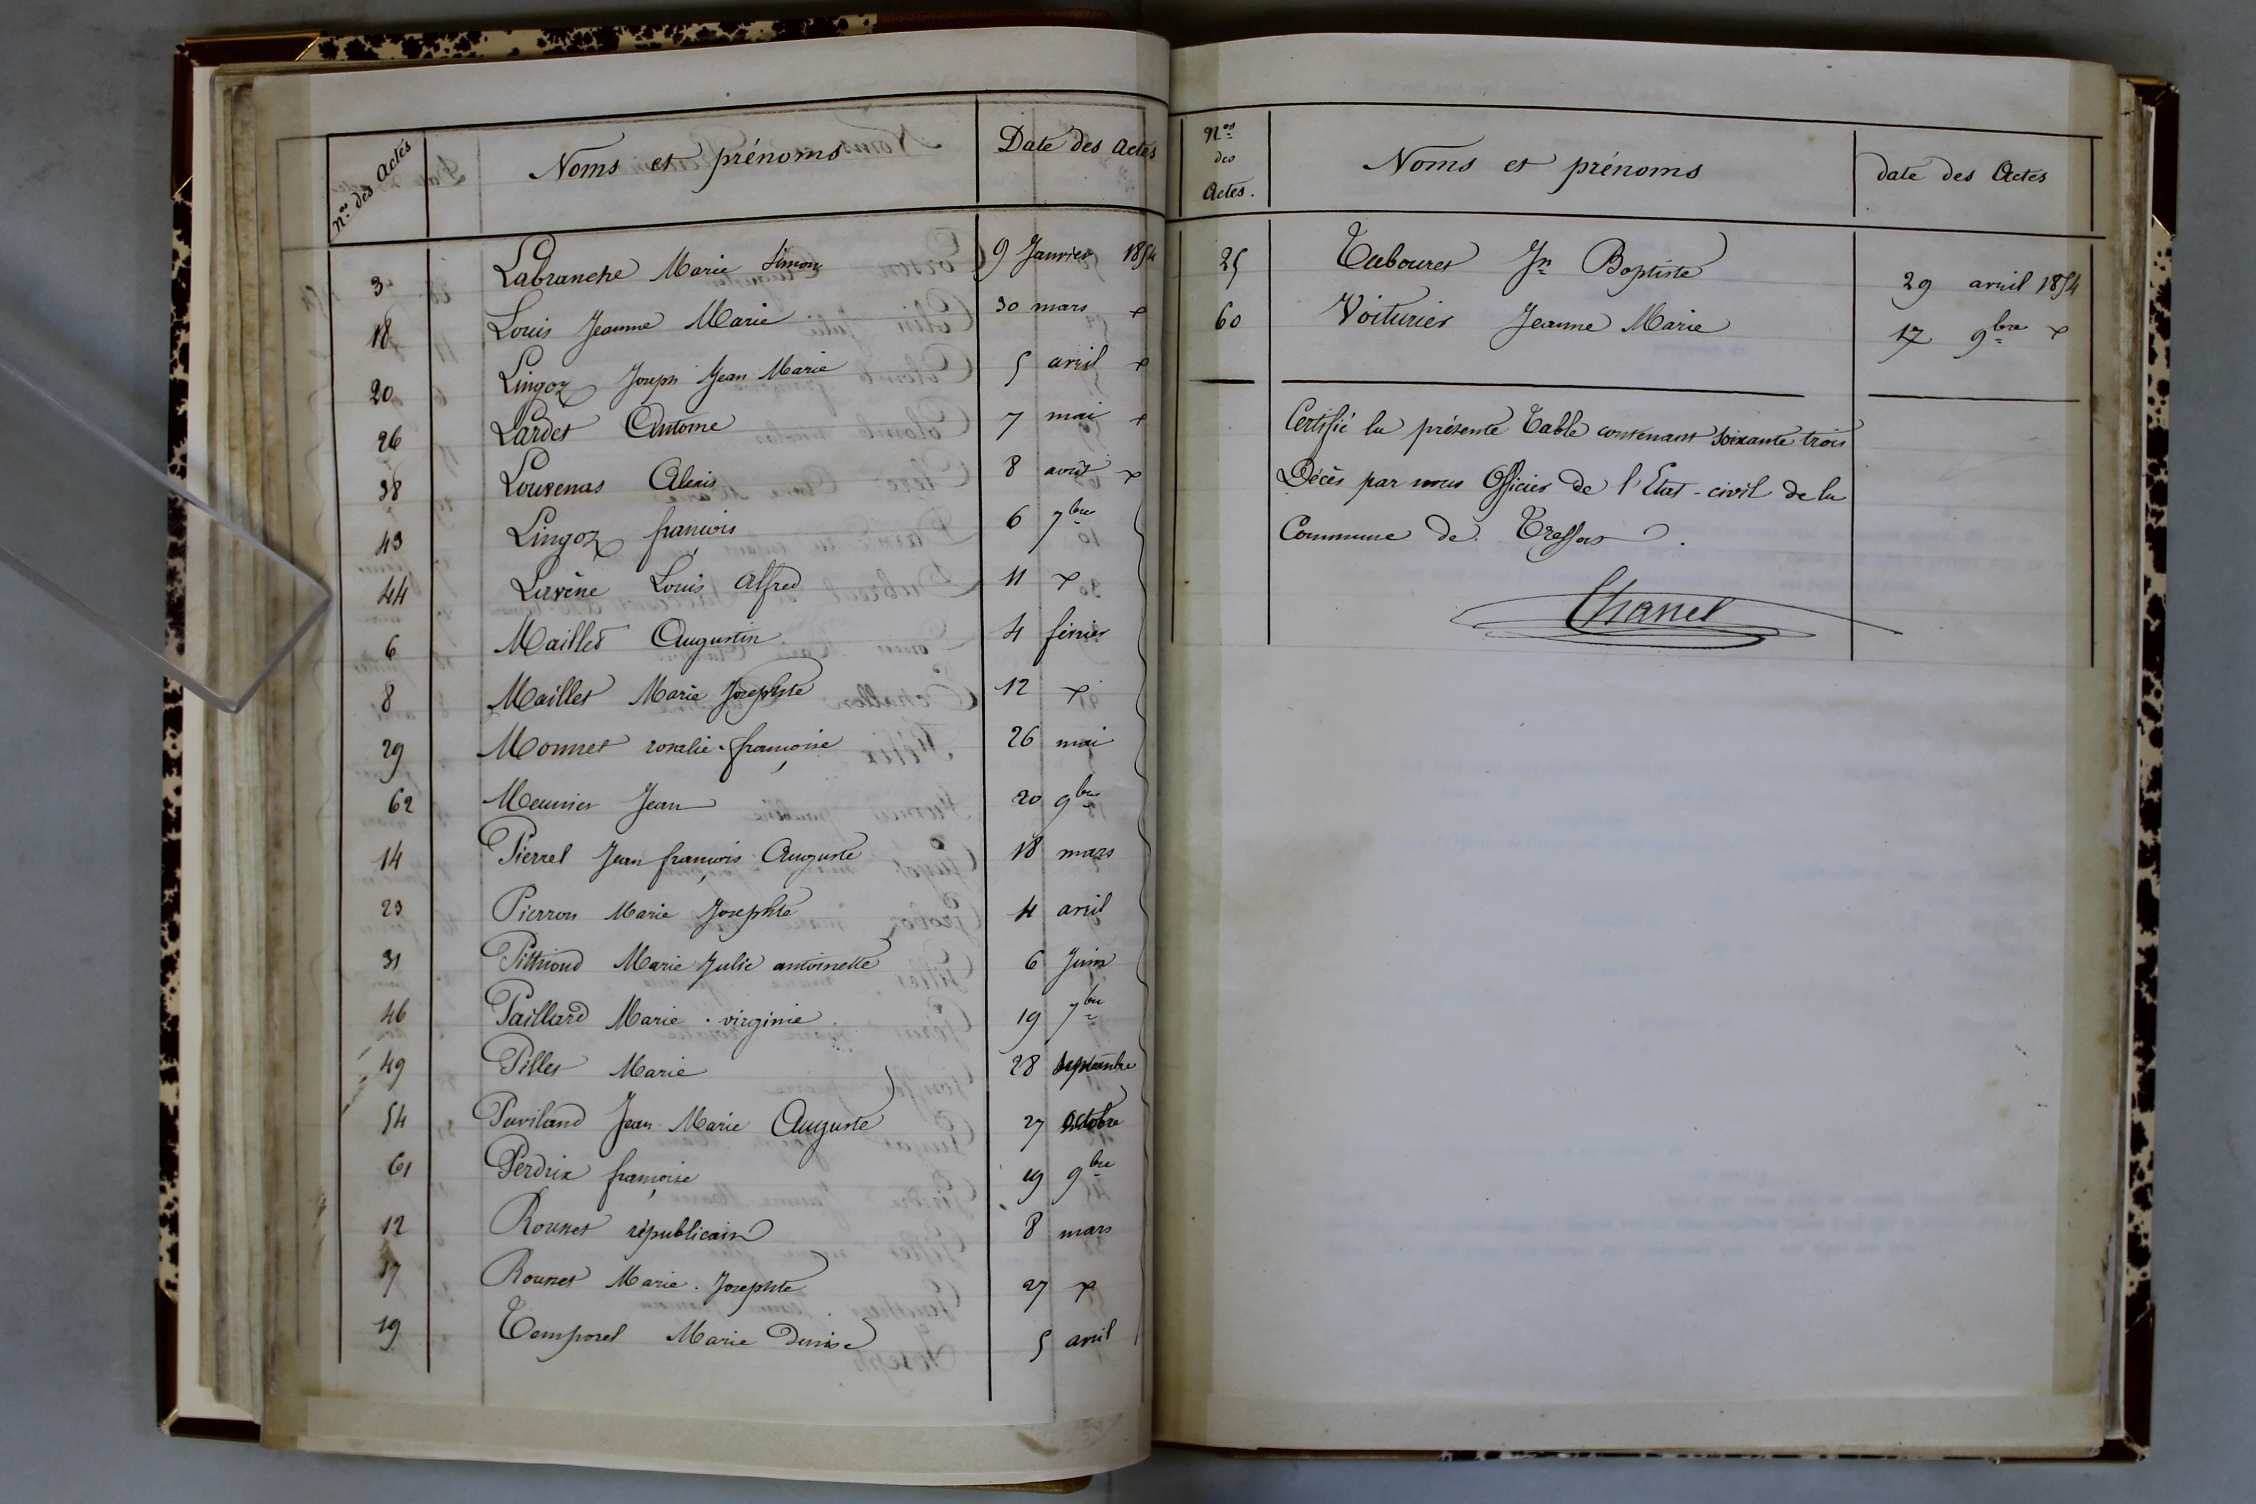 Nos des Actes Noms et prénoms Date des Actes
3 Labranche Marie Simon 9 Janvier 1854
18 Louis Jeanne Marie 30 mars
20 Lingoz Joseph Jean Marie 5 avril
26 Lardet Antoine 7 mai
38 Louvenas Alexis 8 août
43 Lingoz françois 6 7bre
44 Lavène Louis alfred 11
6 Maillet Augustin 4 février
8 Maillet Marie Josephte 12
29 Monnet rosalie françoise 26 mai
62 Meunier Jean 20 9bre
14 Pierrel Jean françois Auguste 18 mars
23 Pierron Marie Josephte 4 avril
31 Pithioud Marie Julie antoinette 6 Juin
46 Paillard Marie virginie 19 7bre
49 Pillet Marie 28 Septembre
54 Paviland Jean Marie Auguste 27 octobre
61 Perdrix françoise 19 9bre
12 Rousset républicain 8 mars
17 Rousset Marie Josephte 27
19 Temporel Marie Denise 5 avril
Nos des Actes. Noms et prénoms date des Actes
25 Tabouret Jn Baptiste 29 avril 1854
60 Voiturier Jeanne Marie 17 9bre
Certifié la présente Table contenant soixante trois
Décès par nous Officier de l'Etat-civil de la
Commune de Treffort.
Chanel